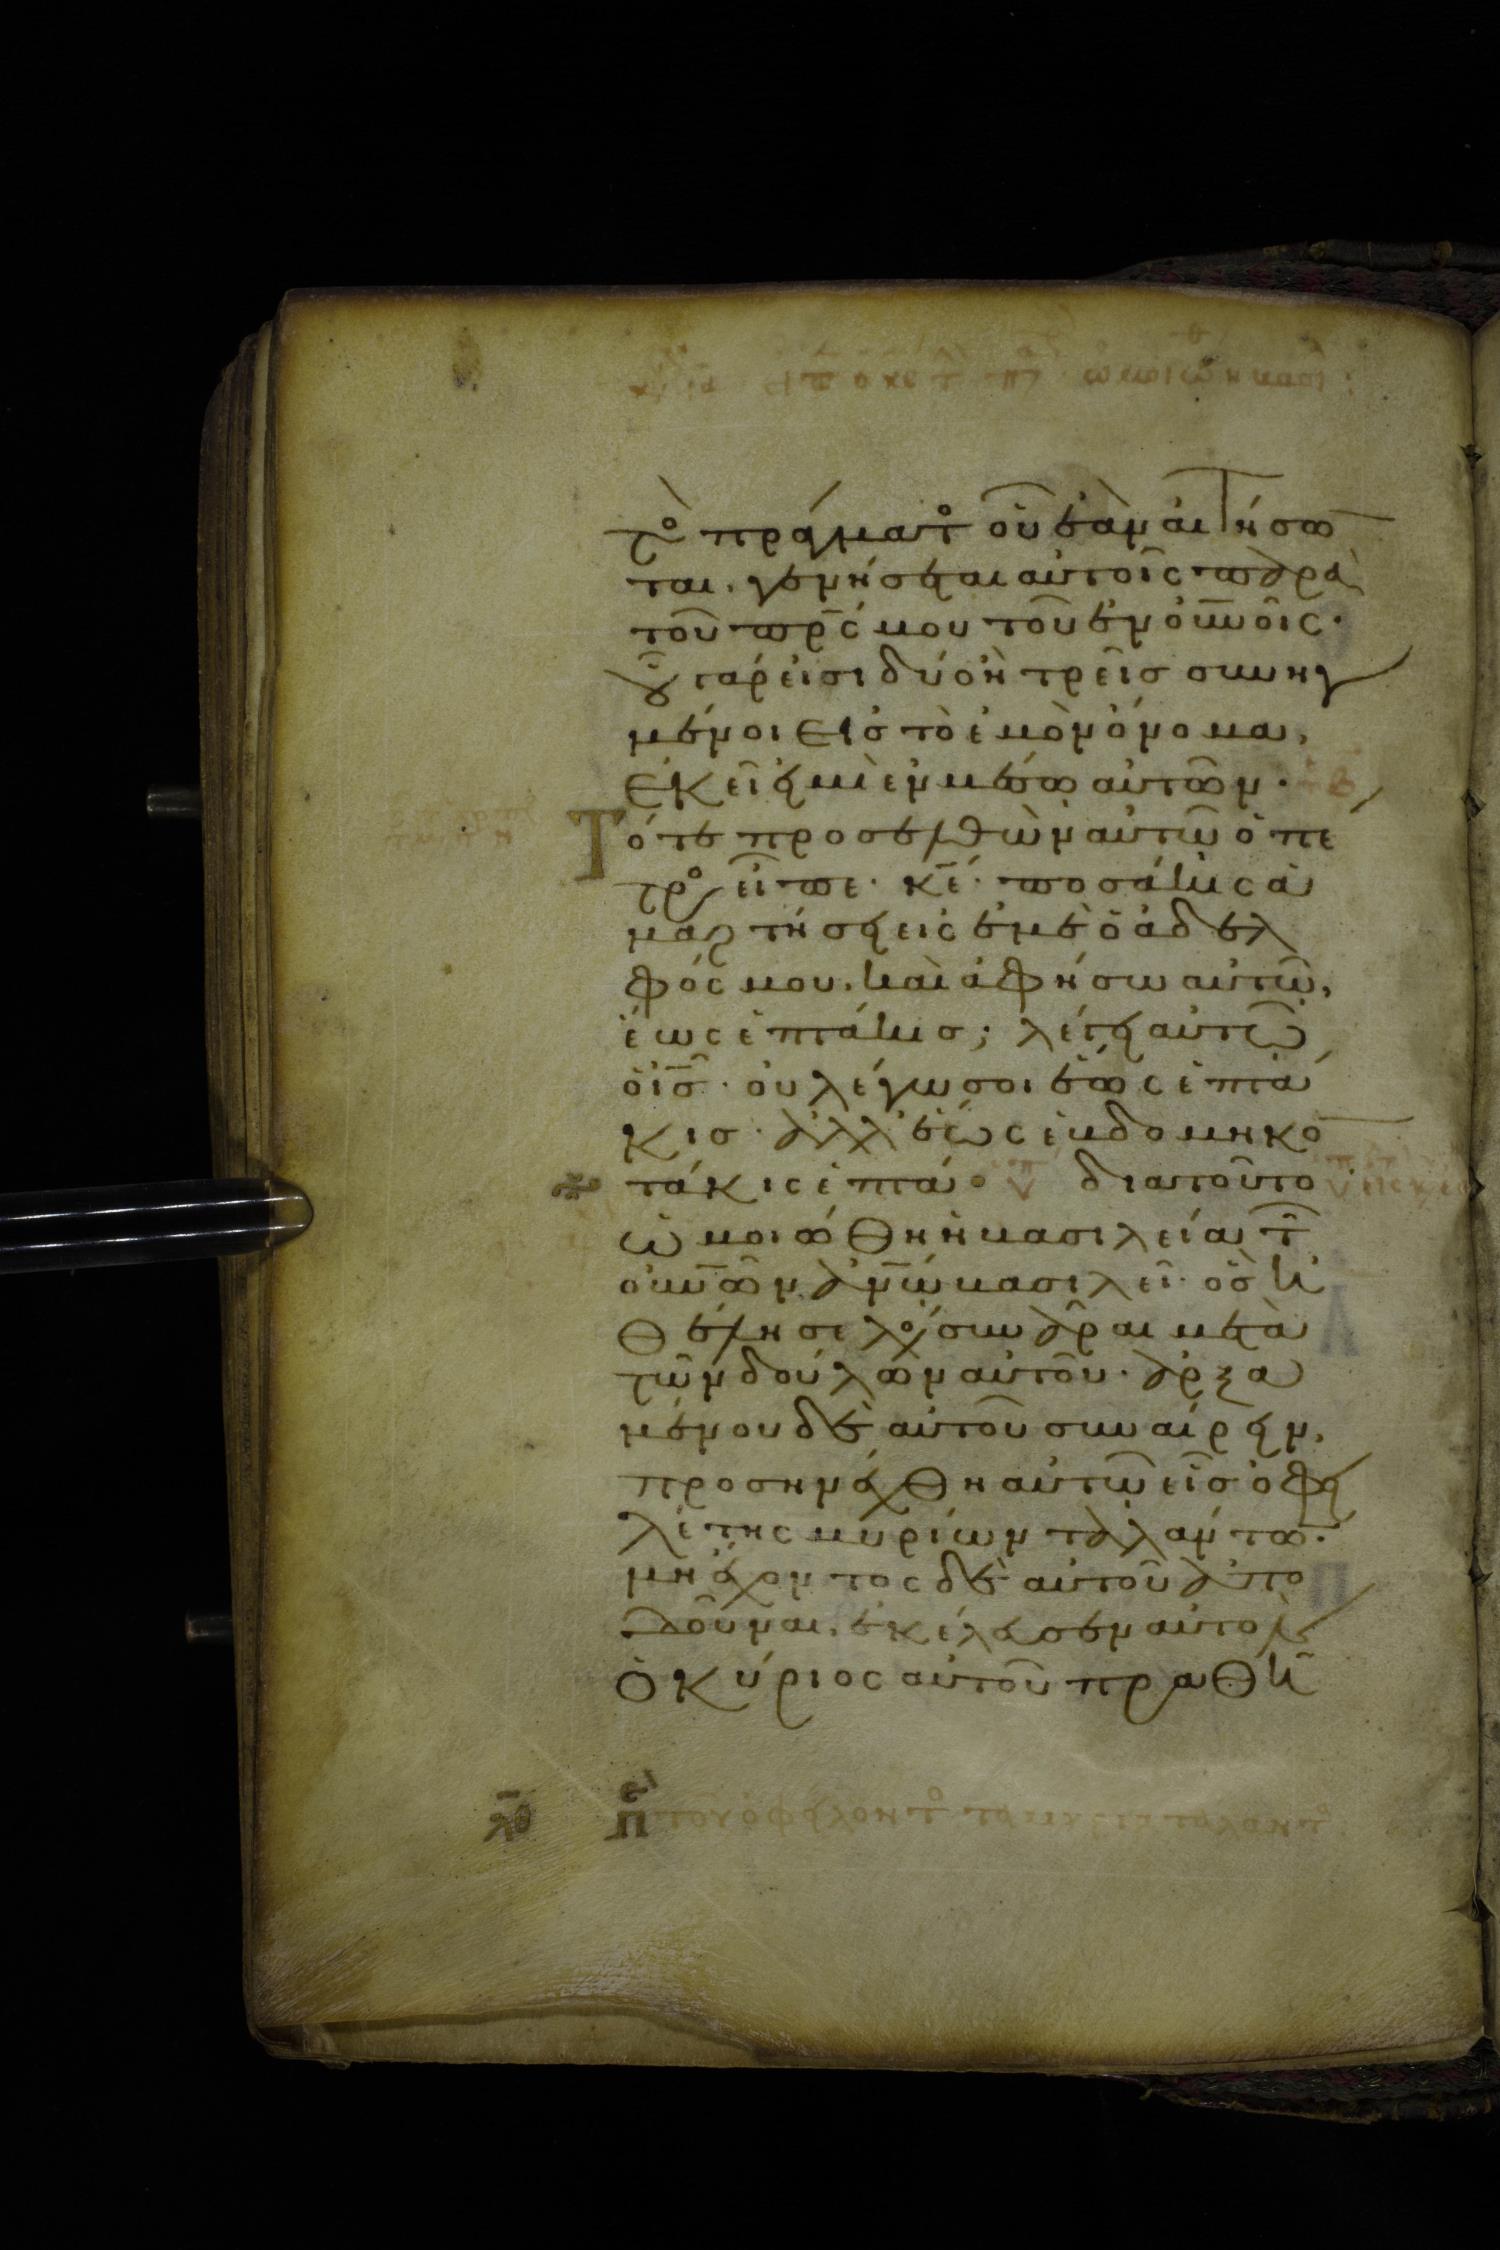 τὸς πράγματος οὗ ἐὰν αἰτήσων
ται. γενήσεται αὐτοῖς παρὰ
τοῦ πρς μου τοῦ ἐν οὐνοῖς.
οὗ γάρ εἰσι δύο ἢ τρεῖς συνηγ
μένοι εἰς τὸ ἐμὸν ὄνομα,
ἐκεῖ εἰμὶ ἐν μέσω αὐτῶν.
Τότε προσελθὼν αὐτῶ ὁ πέ
τρος εἶπε. κε. ποσάκις ἁ
μαρτήσει εἰς ἐμὲ ὁ ἀδελ
φός μου. καὶ ἀφήσω αὐτῶ,
ἕως ἑπτάκις; λέγει αὐτῶ
ὁ ις. οὐ λέγω σοι ἕως ἑπτά
κις. ἀλλ' ἕως ἑβδομηκον
τάκις ἑπτά. διατοῦτο
ὡμοιώθη ἡ βασιλεία τῶν
οὐνῶν ἀνω βασιλεῖ. ὃς καὶ
θέλησε λόγον συνᾶραι μετὰ
τῶν δούλων αὐτοῦ. ἀρξα
μένου δὲ αὐτοῦ συναίρειν,
προσηνέχθη αὐτῶ εἷς ὀφει
λέτης μυρίων ταλάντων.
μὴ ἔχοντος δὲ αὐτοῦ ἀπο
δοῦναι. ἐκέλευσεν αὐτὸν
ὁ κύριος αὐτοῦ πραθῆ
λθ π τοῦ ὀφείλοντος τὰ μύρια τάλαντα